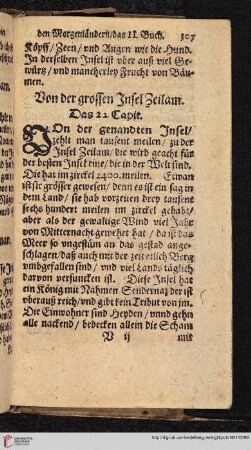 den Morgenländern/das II. Buch. 307
Köpff/ Zeen/ vnd Augen wie die Hund.
In derselben Insel ist vber auß viel Ge-
würs/ vnd mancherley Frucht von Bäu-
men.
Von der grossen Insel Zeilam.
Das 22 Capit.
VOn der genandten Insel/
zehlt man tausent meilen/ zu der
Insel Zeilam/ die wird geacht für
der besten Insel eine/ die in der Welt sind.
Die hat im zirckel 2400. meilen. Etwan
ist sie grösser gewesen/ denn es ist ein sag in
dem Land/ sie hab vorzeiten drey tausent
sechs hundert meilen im zirckel gehabt/
aber als der gewaltige Wind viel Jahr
von Mitternacht gewehet hat/ da ist das
Meer so vngestüm an das gestad ange-
schlagen/ daß auch mit der zeit etlich Berg
vmbgefallen sind/ vnd viel Lands täglich
darvon versuncken ist. Diese Insel hat
ein König mit Nahmen Sendernaz der ist
vberauß reich/ vnd gibt kein Tribut von jm.
Die Einwohner sind Heyden/ vnnd gehn
alle nackend/ bedecken allein die Scham
V ij mit